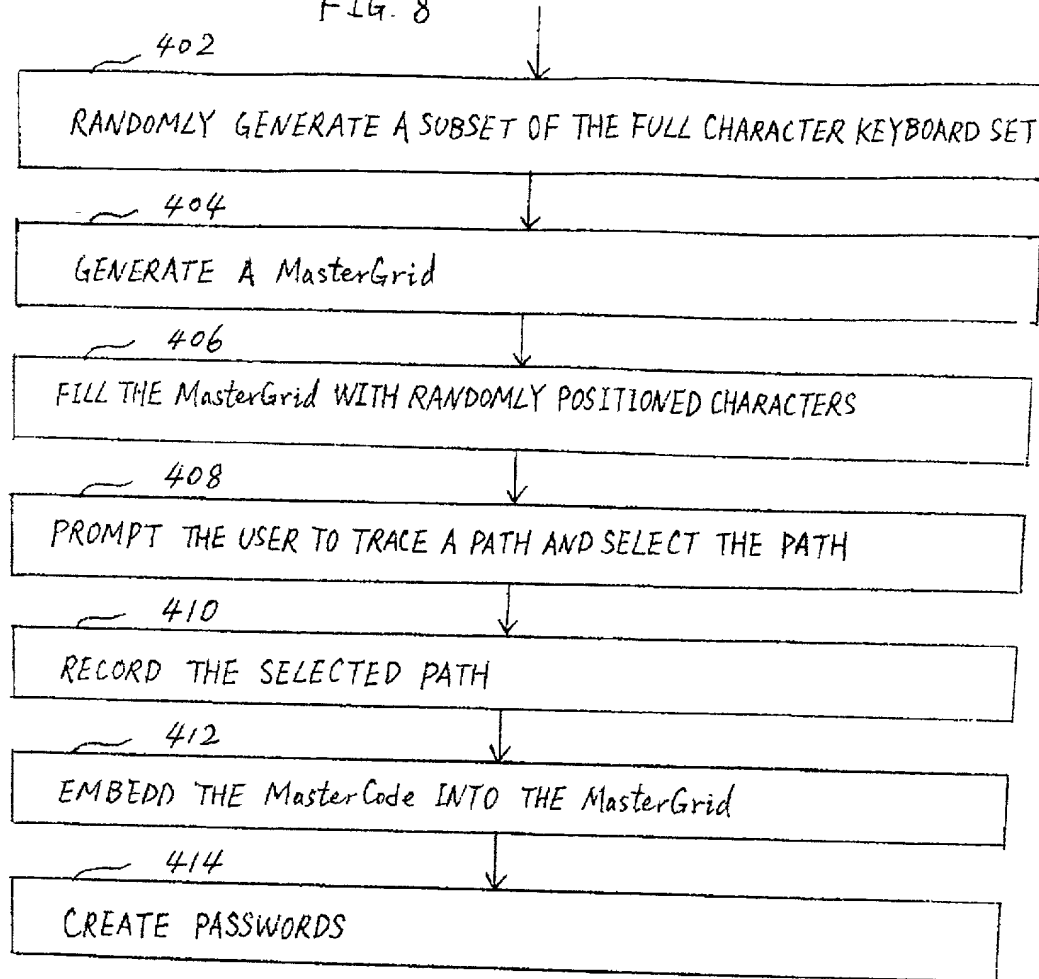 FIG. 8
402
RANDOMLY GENERATE A SUBSET OF THE FULL CHARACTER KEYBOARD SET
404
GENERATE A MasterGrid
406
FILL THE MasterGrid WITH RANDOMLY POSITIONED CHARACTERS
408
PROMPT THE USER TO TRACE A PATH AND SELECT THE PATH
410
RECORD THE SELECTED PATH
412
EMBEDD THE MasterCode INTO THE MasterGrid
414
CREATE PASSWORDS